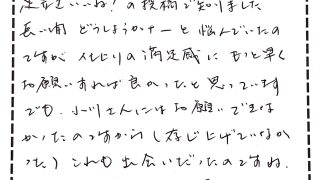 庭をいいね!の投稿で知りました
長い間 どうしようかナーと悩んでいたの
ですが 仕上りの満足感に もっと早く
お願いすれば良かったと思っています
でも、小川さんには お願いできな
かったのですから(存じ上げていなか
った)これも出会いだったのですね.